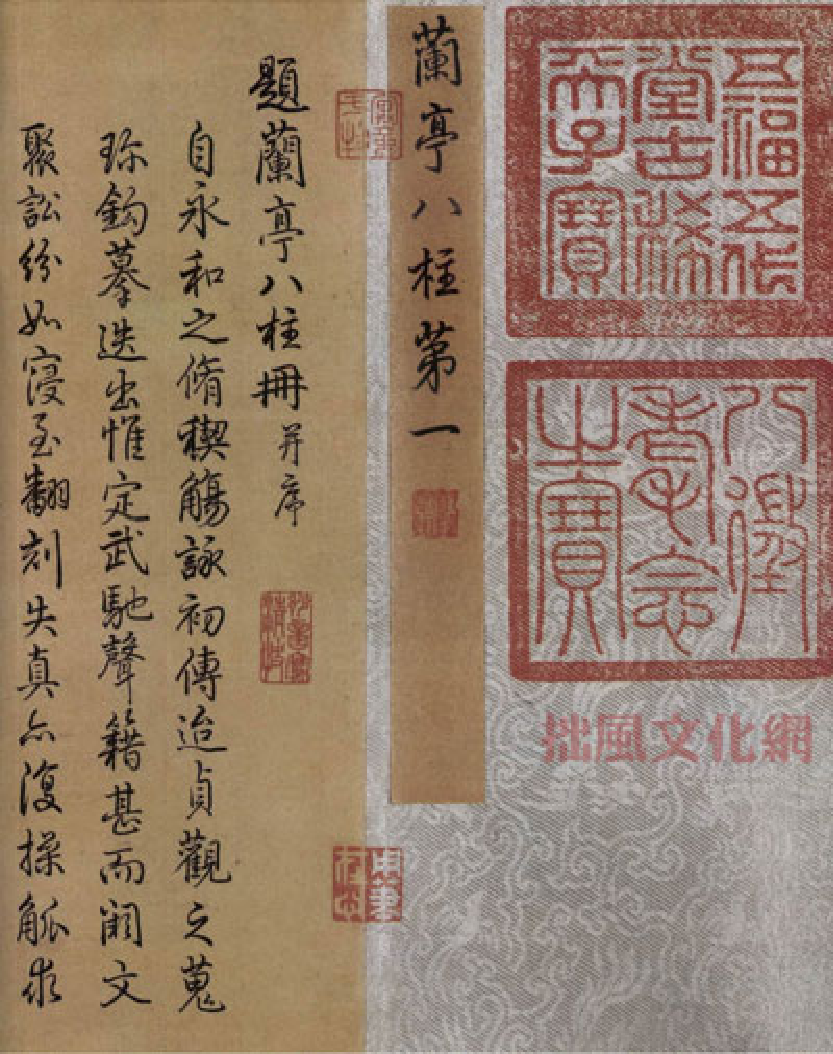 五福五代
堂古稀
天子寶
八徵
耄念
之寶
拙風文化網
蘭亭八柱苐一
題蘭亭八柱冊并序
自永和之脩稧觴詠初傳迨貞觀之蒐
珎鉤摹迭出惟定武馳聲籍甚而闕文
聚訟紛如寖至翻刻失真亦復操觚求